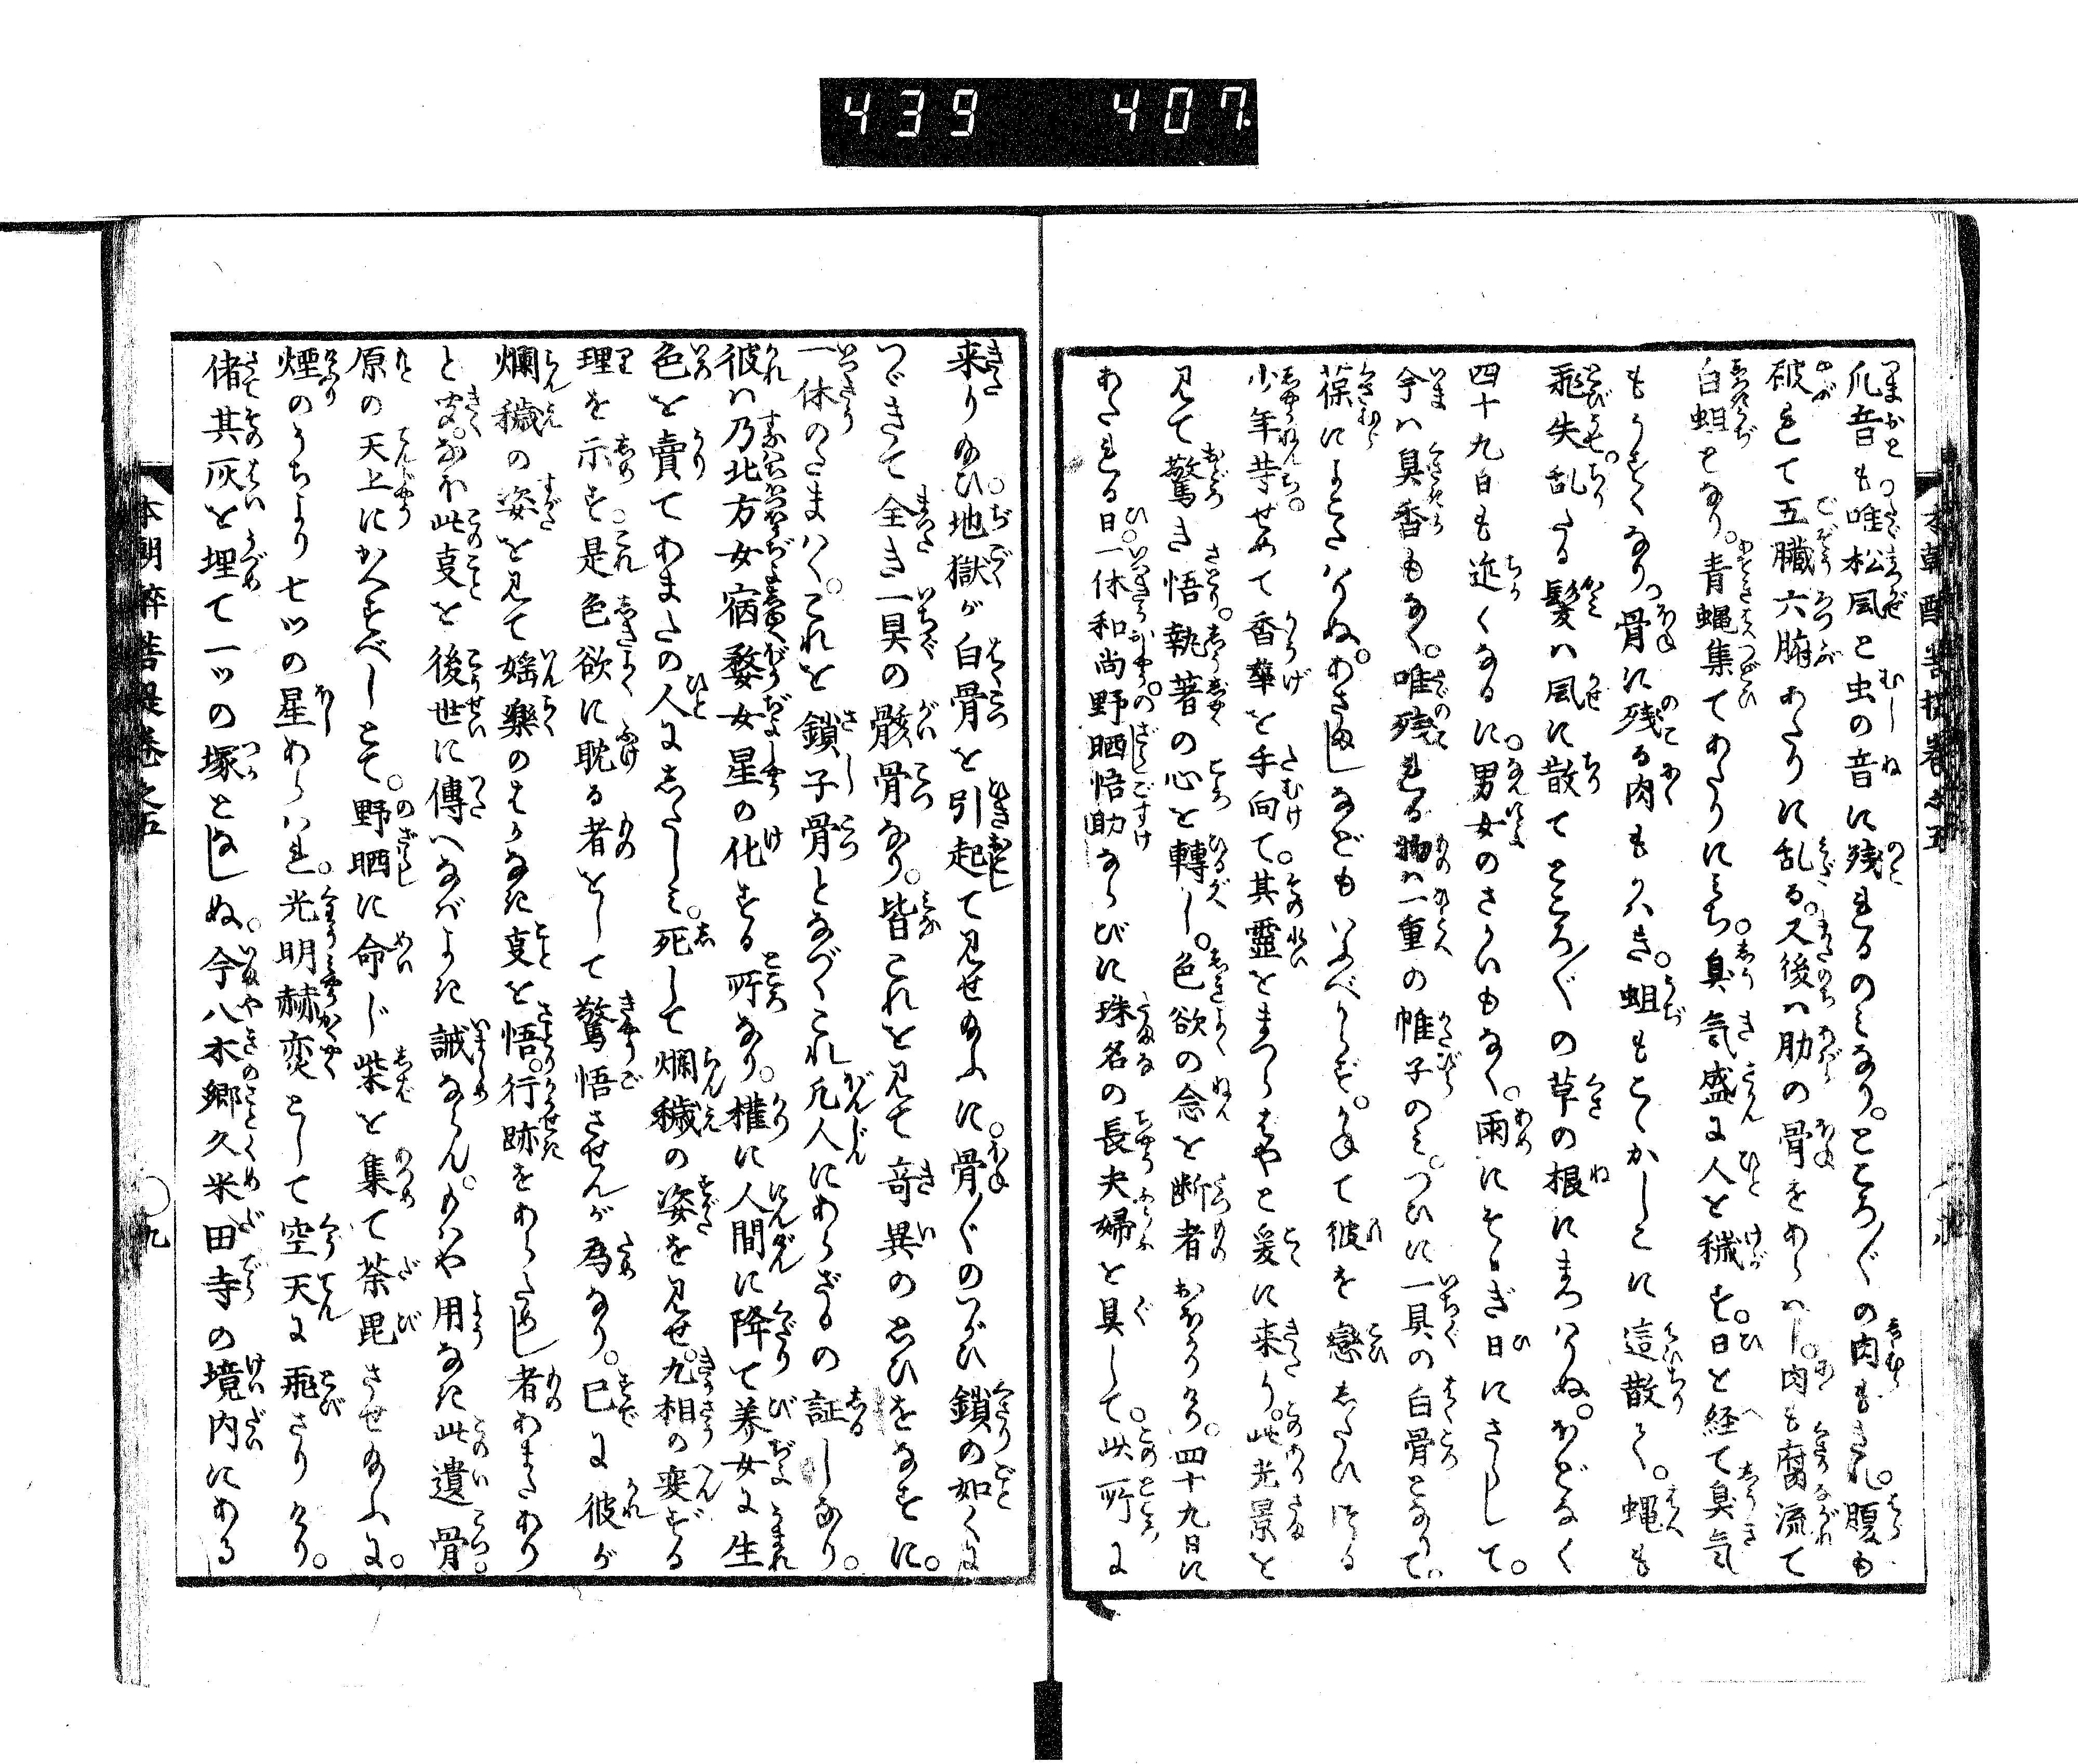 439 407
爪音も唯松風と虫の音に残れるのみなり。ところ〴〵の肉もきれ。腹も
破れて五臓六腑あたりに乱る。又後は肋の骨をあらはし。肉も腐流て
白蛆となり。青蝿集てあたりにみち。臭気盛に人を穢す。日を経て臭気
もうすくなり。骨に残る肉もかはき。蛆もこゝかしこに這散て。蝿も
飛失乱たる髪は風に散てところ〴〵の草の根にまつはりぬ。ほどなく
四十九日も近くなるに。男女のさかいもなく。雨にそゝぎ日にさらして。
今は臭香もなく。唯残れる物は一重の帷子のみ。つひに一具の白骨となりて。
葆にまとはりぬ。あさましなどもいふべからず。かねて彼を戀したひける
少年等せめて香華を手向て。其靈をまつらはやと爰に来り。此光景を
見て驚き悟執著の心を轉し。色欲の念を断者おほかりけり。四十九日に
あたれる日。一休和尚野晒悟助ならびに珠名の長夫婦を具して。此所に
来り給ひ。地獄が白骨を引起て見せ給ふに。骨〴〵のつがひ鎖の如くに
つゞきて全き一具の骸骨なり。皆これを見て奇異の思ひをなすに。
一休のたまはく。これを鎖子骨となづくこれ凡人にあらざるの証しなり。
彼は乃北方女宿婺女星の化する所なり。権に人間に降て養女に生
色を賣てあまたの人にしたしみ。死して爛穢の姿を見せ。九相の変ずる
理を示す。是色欲に耽る者をして驚悟させんが為なり。已に彼が
爛穢の姿を見て婬樂のはかなき事を悟。行跡をあらためし者あまたあり
と聞。なほ此事を後世に傳へなばよき誡ならん。もはや用なき此遺骨。
原の天上にかへすべしとて。野晒に命じ柴を集て荼毘させ給ふに。
煙のうちより七ツの星あらはれ。光明赫奕として空天に飛さりけり。
偖其灰を埋て一ツの塚となしぬ。今八木郷久米田寺の境内にある
本朝酔菩提巻之五
九